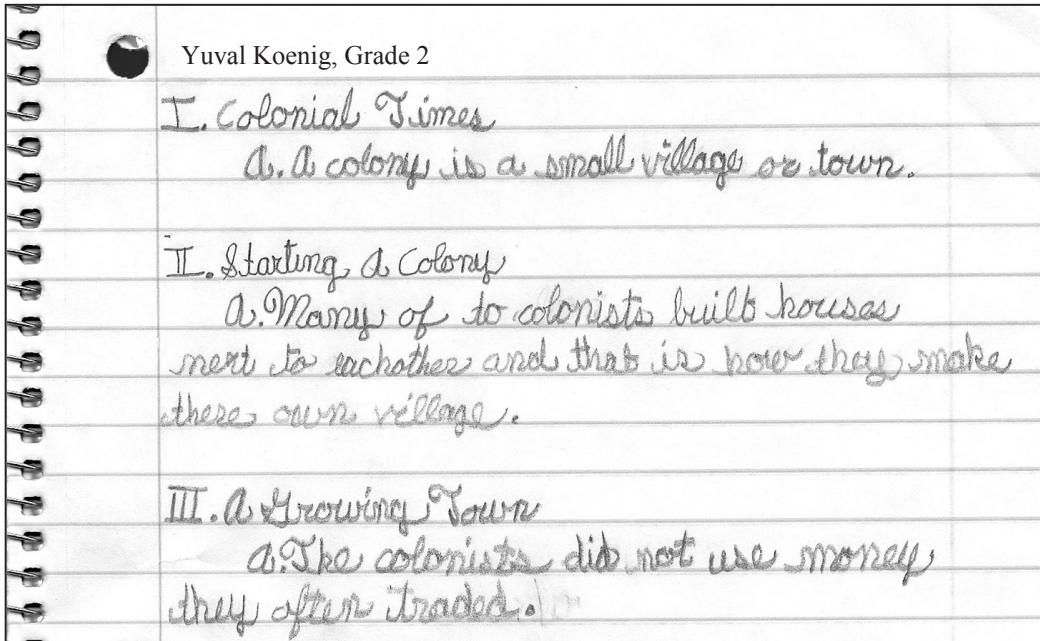 Yuval Koenig, Grade 2
I. Colonial Times
a. A colony is a small village or town.
II. Starting A Colony
a. Many of to colonists built houses
next to eachother and that is how they make
there own village.
III. A Growing Town
a. The colonists did not use money
they often traded.